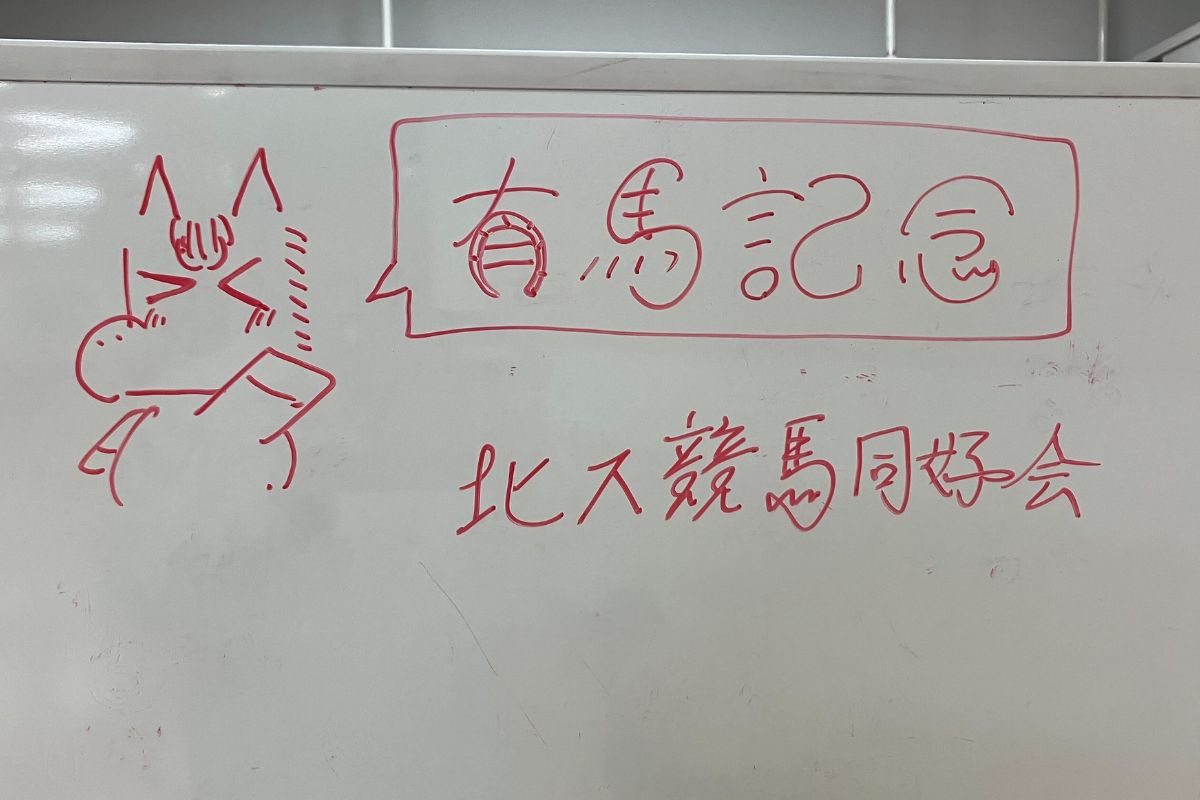 有馬記念
北ス競馬同好会